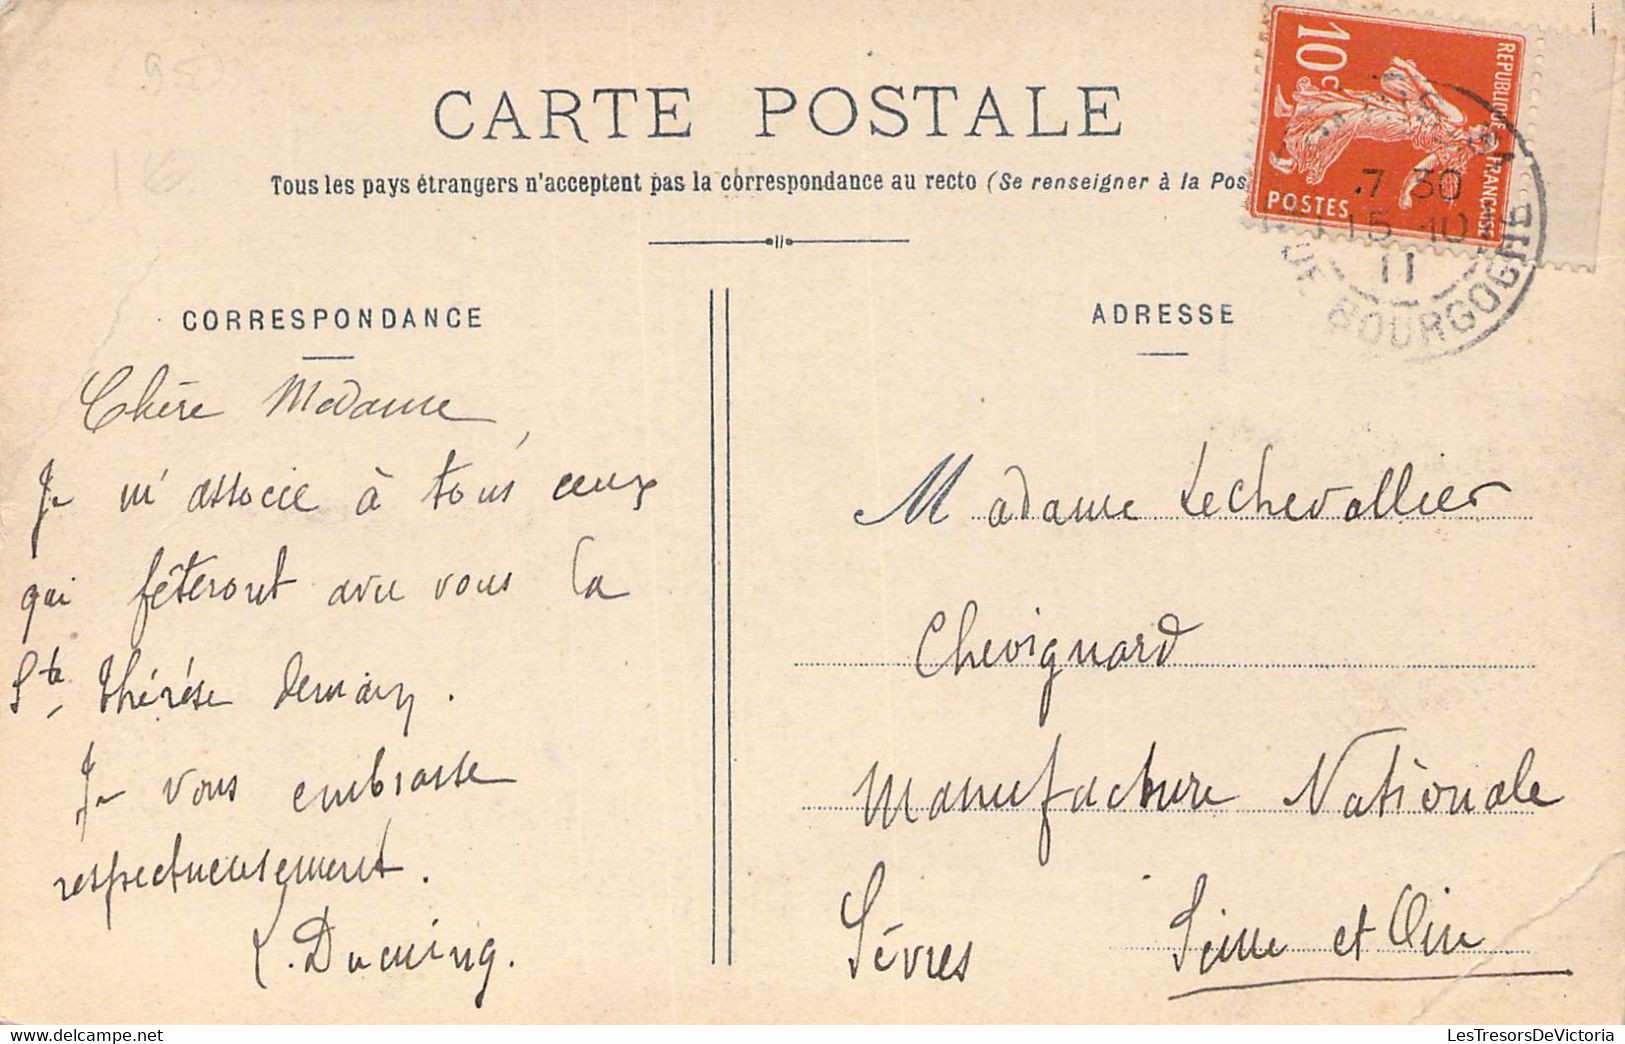 95
16
CARTE POSTALE
Tous les pays étrangers n'acceptent pas la correspondance au recto (Se renseigner à la Pos
10c
REPUBLIQUE FRANÇAISE
POSTES
7 30
15 10
11
RUE BOURGOGNE
CORRESPONDANCE
ADRESSE
Chère Madame,
Je m'associe à tous ceux
qui fêteront avec vous la
Ste Thérése demain.
Je vous embrasse
respectueusement.
Madame LeChevallier
Chevignard
Manufacture Nationale
Sèvres Seine et Oise
LesTresorsDeVictoria